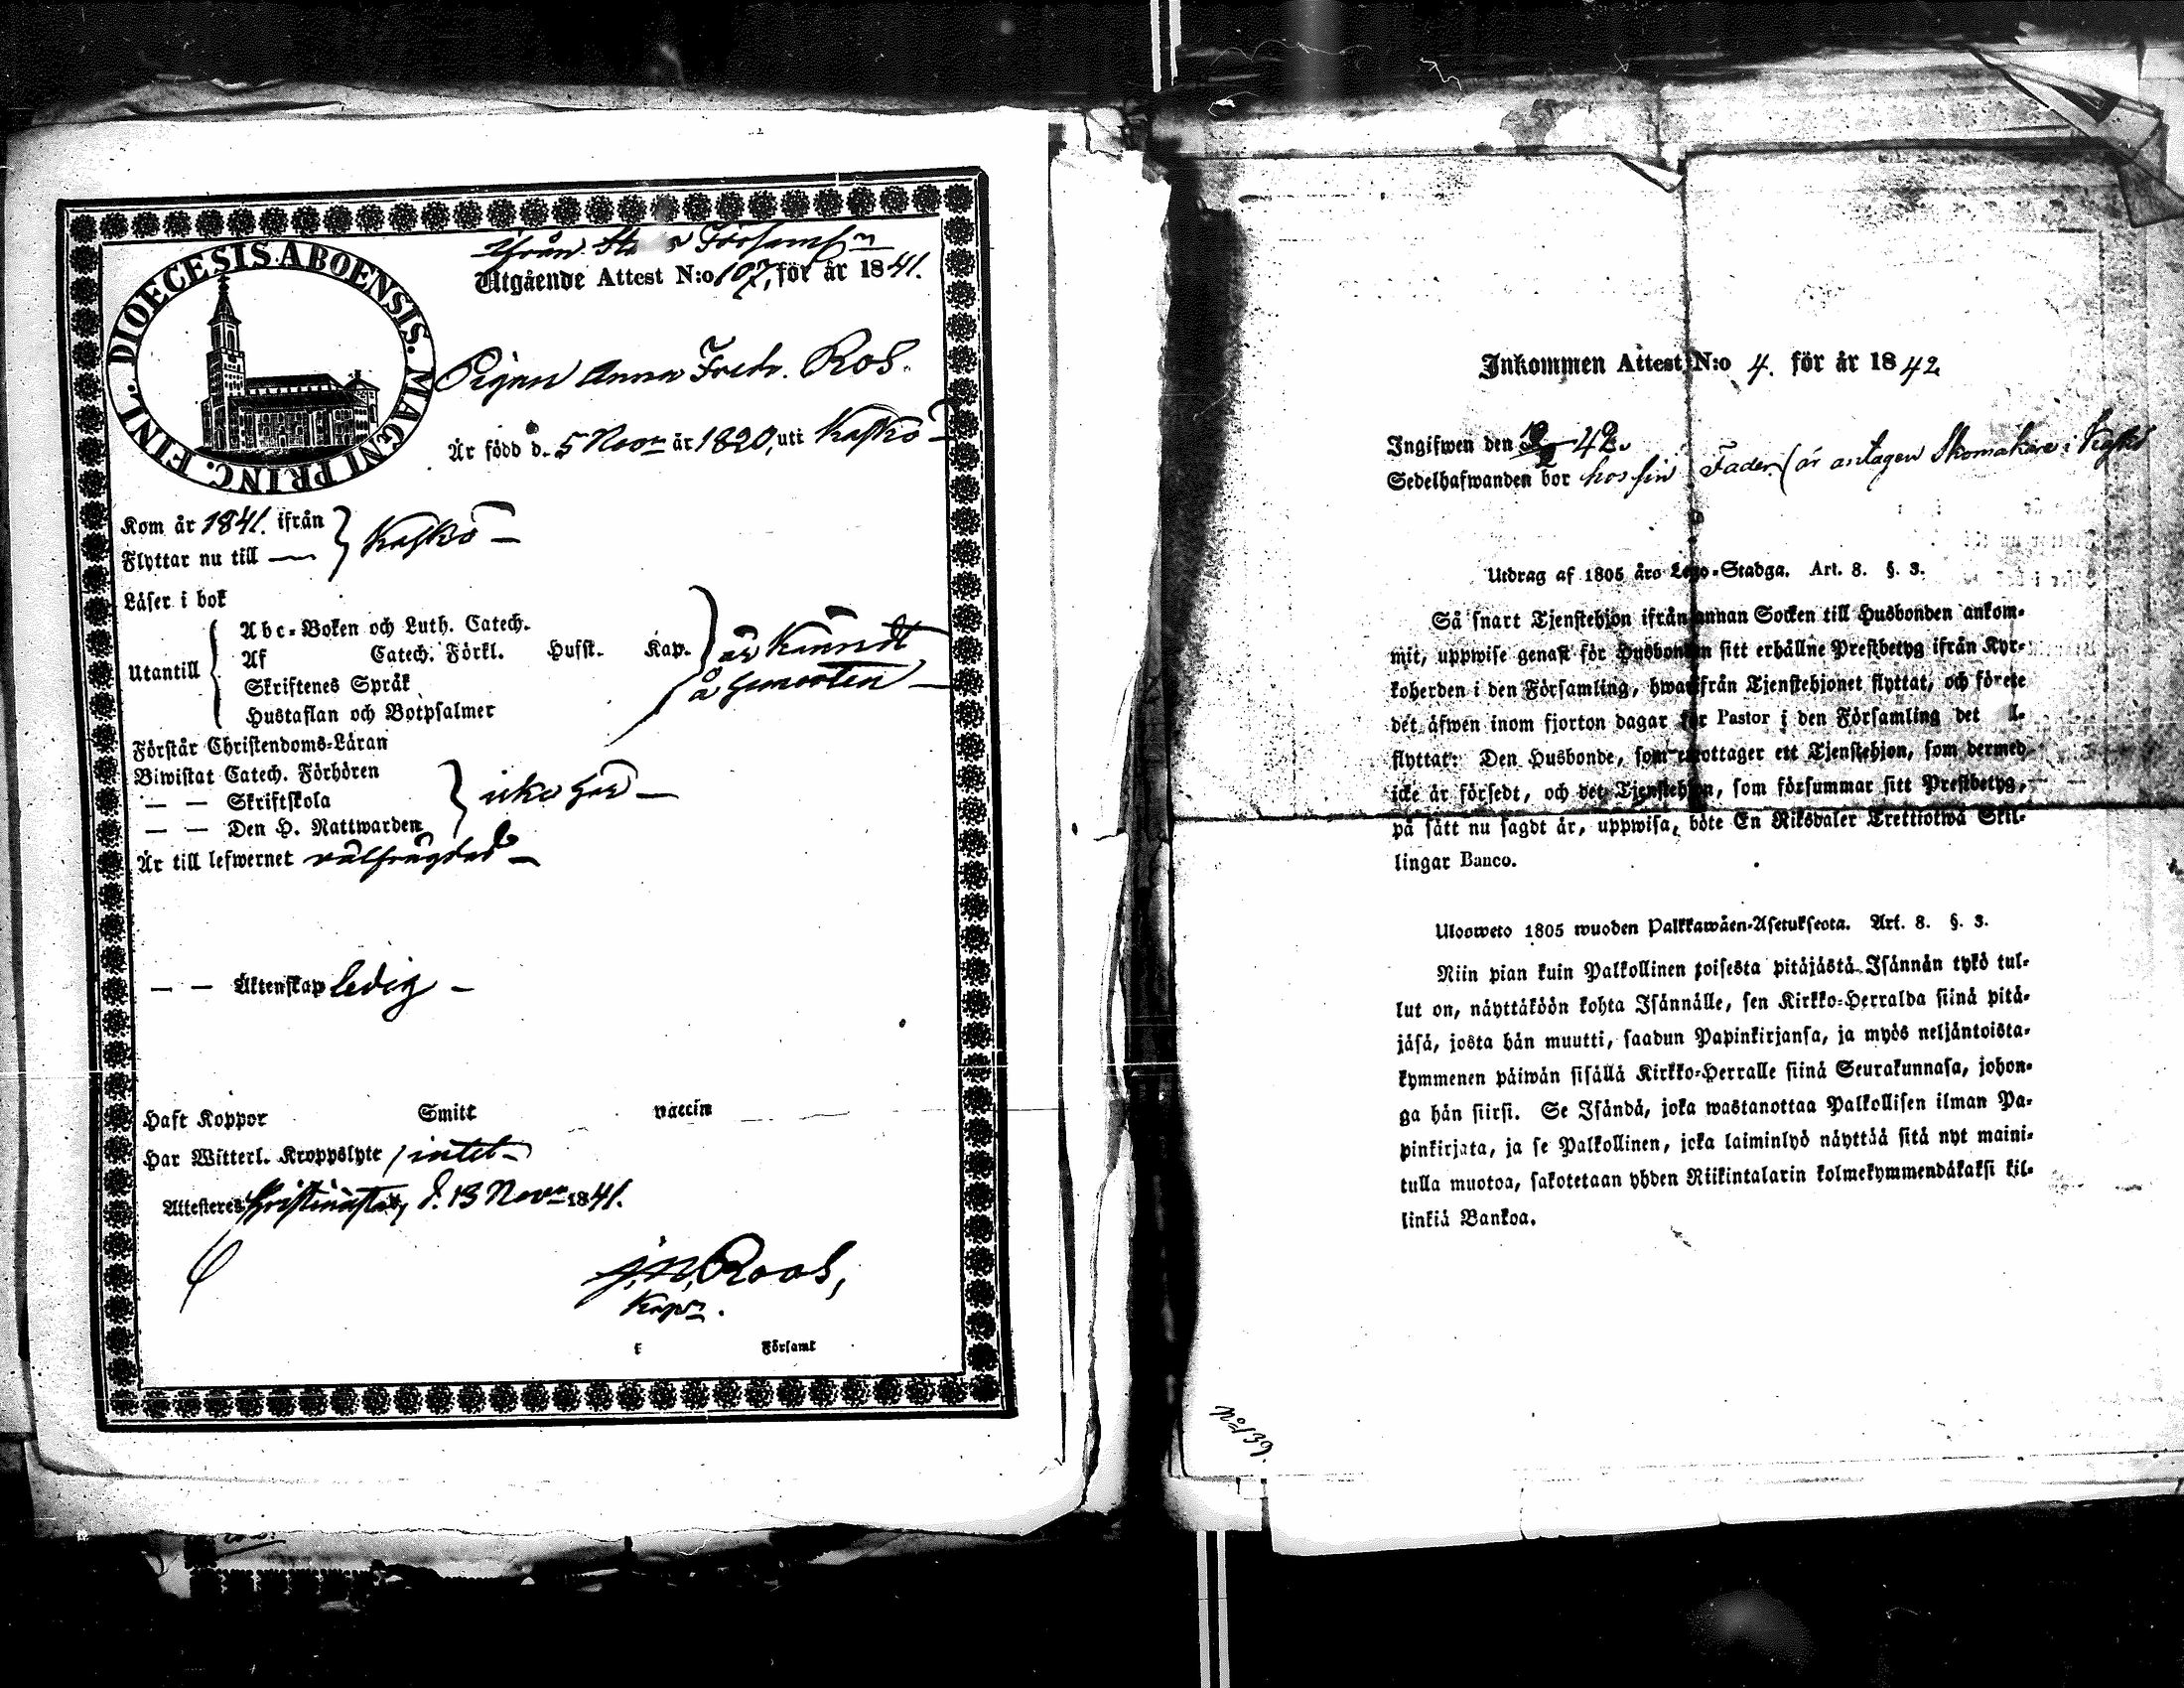 Ifrån Stads Församln
Utgående Attest N:o 107, för år 1841.
DIOECESIS ABOENSIS. MAGNI PRINC. FINL.
Pigan Anna Fredr. Ros.
Är född d. 5 Novr år 1820, uti Kaskö
Kom år 1841. ifrån
Flyttar nu till — } Kaskö —
Läser i bok
Utantill
Abc-Boken och Luth. Catech.
Af Catech. Förkl. Husst. Kap.
Skriftenes Språk
Hustaflan och Botpsalmer
är kändt
å
Förstår Christendoms-Läran
Biwistat Catech. Förhören
— — Skriftskola
— — Den H. Nattwarden
icke här —
Är till lefwernet välfrägdad —
— — Äktenskap ledig —
Haft Koppor Smitt vaccin
Har Witterl. Kroppslyte intet —
Attesteres Christinastad, d. 13 Novr 1841.
J. N. Roos,
Kapn.
i Församl
Inkommen Attest N:o 4. för år 1842
Ingifwen den 42.
Sedelhafwanden bor hos sin Fader (är antagen Skomakare i
Utdrag af 1805 års Lego-Stadga. Art. 8. §. 3.
Så snart Tjenstehjon ifrån annan Socken till Husbonden ankom-
mit, uppwise genast för Husbonden sitt erhållne Prestbetyg ifrån Kyr-
koherden i den Församling, hwarifrån Tjenstehjonet flyttat, och förete
det äfwen inom fjorton dagar för Pastor i den Församling det
flyttat: Den Husbonde, som emottager ett Tjenstehjon, som dermed
icke är försedt, och det Tjenstehjon, som försummar sitt Prestbetyg,
på sätt nu sagdt är, uppwisa, böte En Riksdaler Trettiotwå Skil-
lingar Banco.
Ulosweto 1805 wuoden Palkkawäen-Asetuksesta. Art. 8. §. 3.
Niin pian kuin Palkollinen toisesta pitäjästä Isännän tykö tul-
lut on, näyttäköön kohta Isännälle, sen Kirkko-Herralda siinä pitä-
jäsä, josta hän muutti, saadun Papinkirjansa, ja myös neljäntoista-
kymmenen päiwän sisällä Kirkko-Herralle siinä Seurakunnasa, johon-
ga hän siirsi. Se Isändä, joka wastanottaa Palkollisen ilman Pa-
pinkirjata, ja se Palkollinen, joka laiminlyö näyttää sitä nyt maini-
tulla muotoa, sakotetaan yhden Riikintalarin kolmekymmendäkaksi kil-
linkiä Bankoa.
No 139.